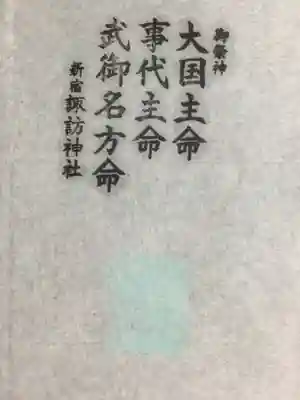 御祭神
大国主命
事代主命
武御名方命
新宿 諏訪神社